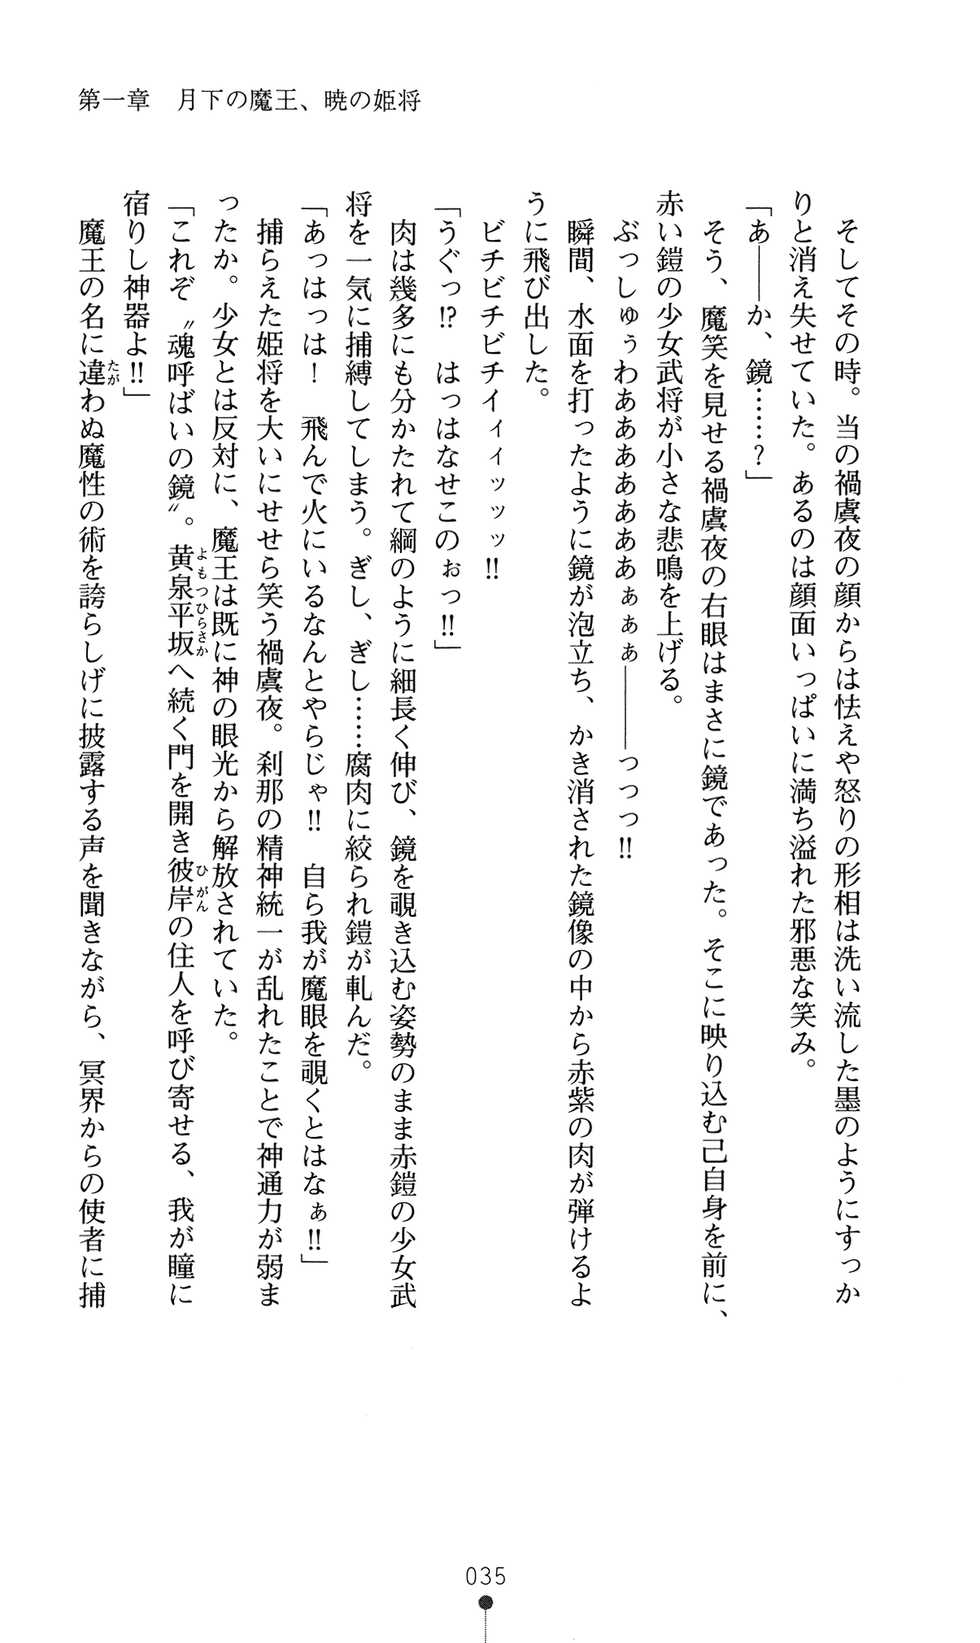 第一章　月下の魔王、暁の姫将
　そしてその時。当の禍虞夜の顔からは怯えや怒りの形相は洗い流した墨のようにすっか
りと消え失せていた。あるのは顔面いっぱいに満ち溢れた邪悪な笑み。
「あ――か、鏡……？」
　そう、魔笑を見せる禍虞夜の右眼はまさに鏡であった。そこに映り込む己自身を前に、
赤い鎧の少女武将が小さな悲鳴を上げる。
　ぶっしゅぅわああああああぁぁぁ――――っっっ!!
　瞬間、水面を打ったように鏡が泡立ち、かき消された鏡像の中から赤紫の肉が弾けるよ
うに飛び出した。
　ビチビチビチイィィッッッ!!
「うぐっ!?　はっはなせこのぉっ!!」
　肉は幾多にも分かたれて綱のように細長く伸び、鏡を覗き込む姿勢のまま赤鎧の少女武
将を一気に捕縛してしまう。ぎし、ぎし……腐肉に絞られ鎧が軋んだ。
「あっはっは！　飛んで火にいるなんとやらじゃ!!　自ら我が魔眼を覗くとはなぁ!!」
　捕らえた姫将を大いにせせら笑う禍虞夜。刹那の精神統一が乱れたことで神通力が弱ま
ったか。少女とは反対に、魔王は既に神の眼光から解放されていた。
「これぞ〝魂呼ばいの鏡〟。黄泉平坂へ続く門を開き彼岸の住人を呼び寄せる、我が瞳に
宿りし神器よ!!」
　魔王の名に違わぬ魔性の術を誇らしげに披露する声を聞きながら、冥界からの使者に捕
よもつひらさか
ひがん
たが
035